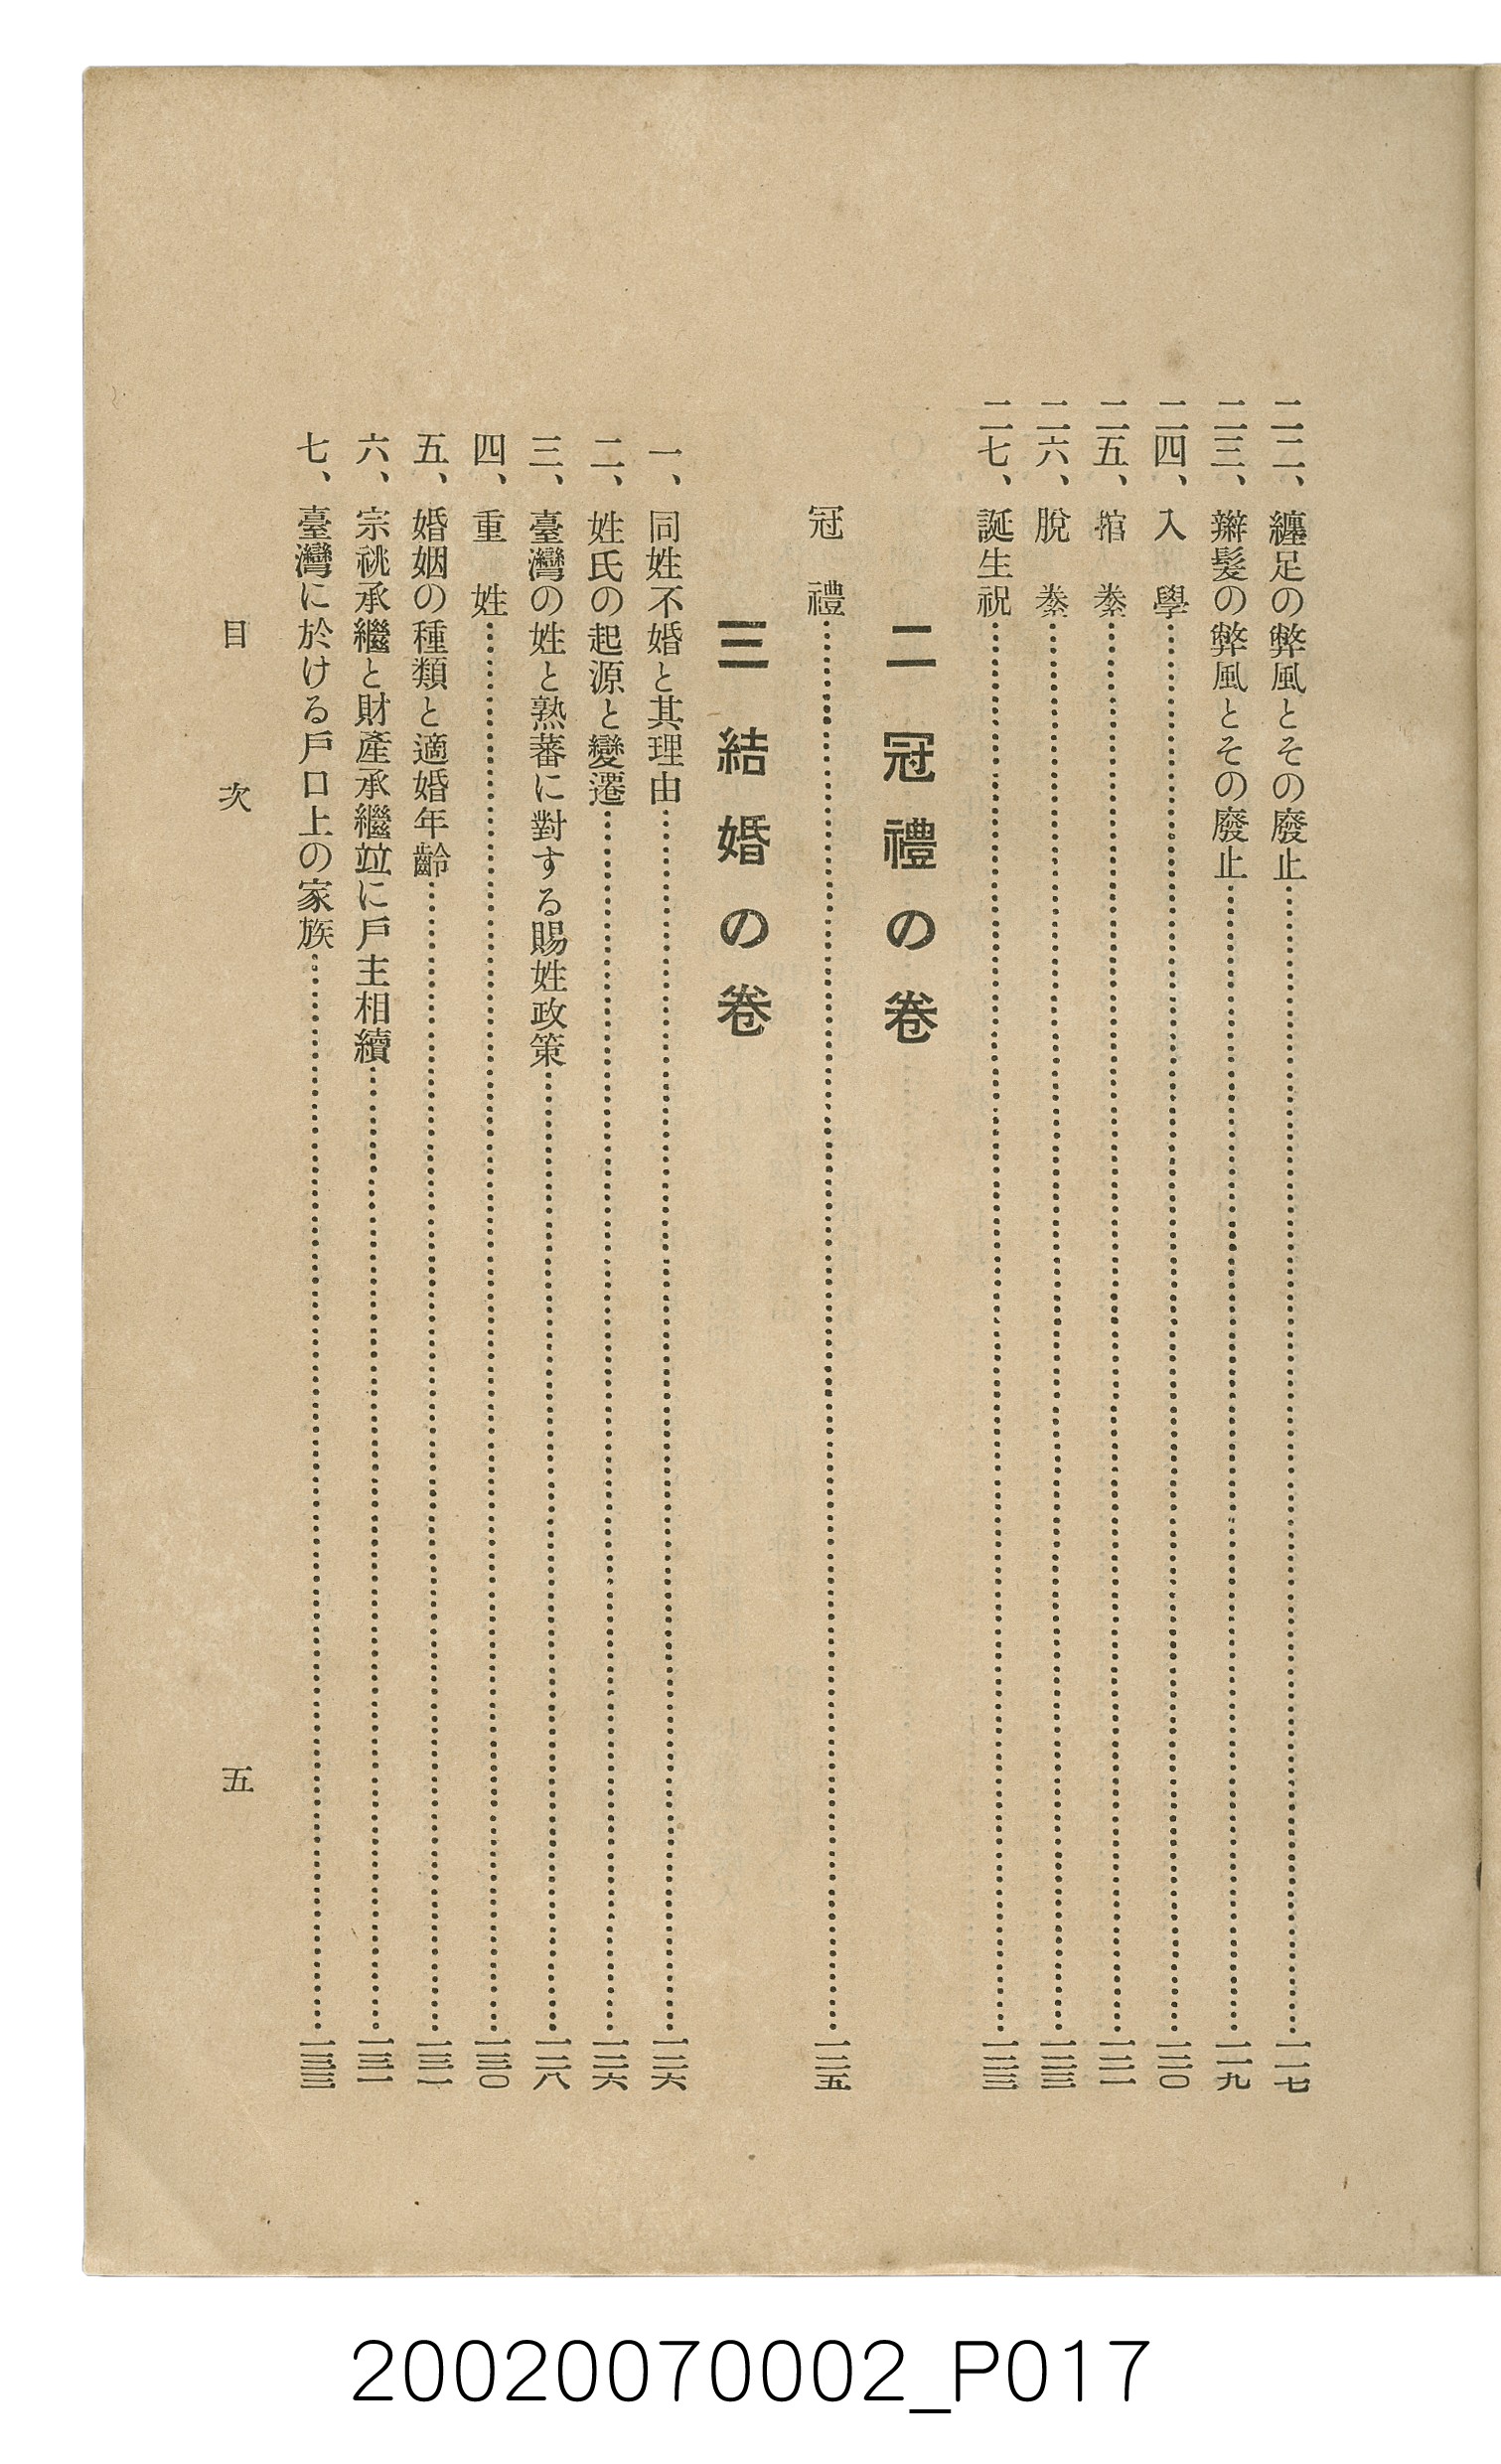 二二、纏足の弊風とその廢止……一一七
二三、辮髮の弊風とその廢止……一一九
二四、入學……一二〇
二五、捾豢……一二二
二六、脫豢……一二三
二七、誕生祝……一二三
二 冠禮の卷
冠禮……一二五
三 結婚の卷
一、同姓不婚と其理由……一二六
二、姓氏の起源と變遷……一二六
三、臺灣の姓と熟蕃に對する賜姓政策……一二八
四、重姓……一三〇
五、婚姻の種類と適婚年齡……一三一
六、宗祧承繼と財產承繼竝に戶主相續……一三二
七、臺灣に於ける戶口上の家族……一三三
目次 五
20020070002_P017